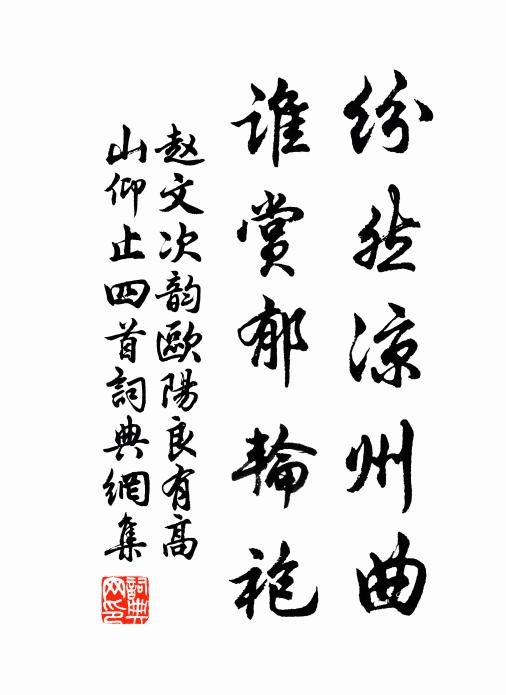 纷然凉州曲
谁赏郁輪袍
赵文次韵歐陽良有高
山仰止四首詞典網集
詞典
网印